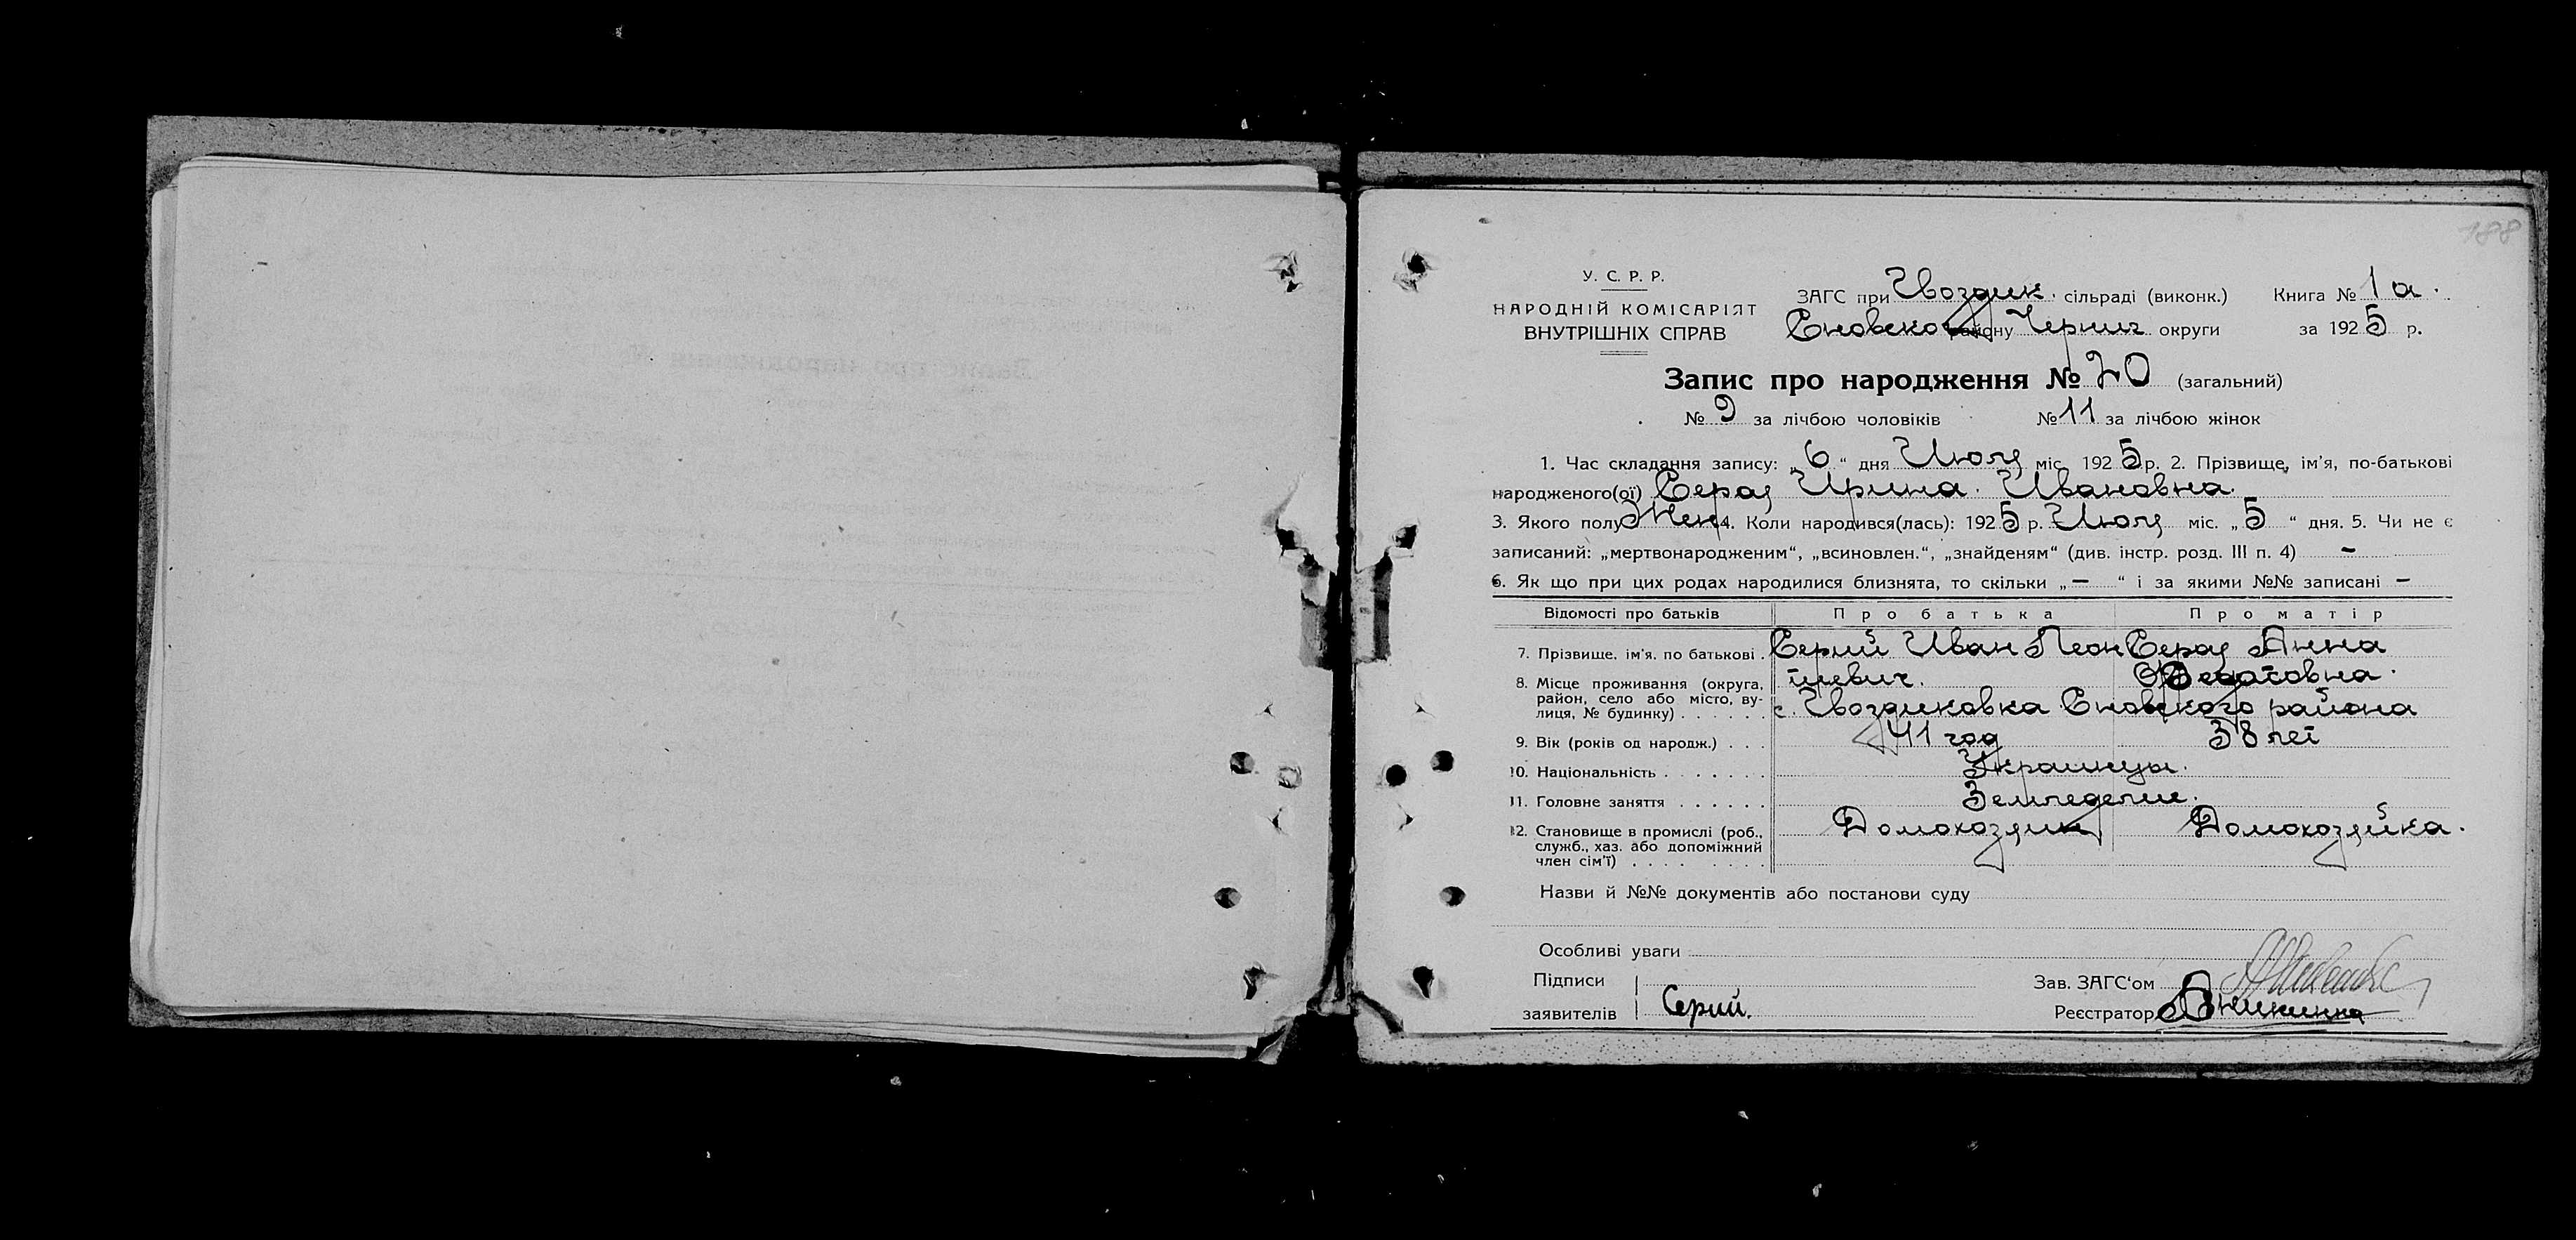 188
У. С. Р. Р.
НАРОДНІЙ КОМІСАРІЯТ
ВНУТРІШНІХ СПРАВ
ЗАГС при Гвоздик. сільраді (виконк.) Книга № 1а.
Сновского району Черниг округи за 1925 р.
Запис про народження № 20 (загальний)
№ 9 за лічбою чоловіків № 11 за лічбою жінок
1. Час складання запису: „6“ дня Июля міс. 1925 р. 2. Прізвище, ім'я, по-батькові
народженого(ої) Серая Ирина Ивановна.
3. Якого полу Жен. 4. Коли народився(лась): 1925 р. Июля міс. „5“ дня. 5. Чи не є
записаний: „мертвонародженим“, „всиновлен.“, „знайденям“ (див. інстр. розд. III п. 4) —
6. Як що при цих родах народилися близнята, то скільки „—“ і за якими №№ записані —
Відомості про батьків Про батька Про матір
7. Прізвище, ім'я, по батькові . Серий Иван Леон Серая Анна
тиевич.
8. Місце проживання (округа,
район, село або місто, ву-
лиця, № будинку) . . . . . . с. Гвоздиковка Сновского района
9. Вік (років од народж.) . . . 41 год 38 лет
10. Національність . . . . . . . Украинцы.
11. Головне заняття . . . . . . Земледелие.
12. Становище в промислі (роб., Домохозяин Домохозяйка.
служб., хаз. або допоміжний
член сім'ї) . . . . . . . .
Назви й №№ документів або постанови суду
Особливі уваги
Підписи
заявителів Серий.
Зав. ЗАГС'ом
Реєстратор